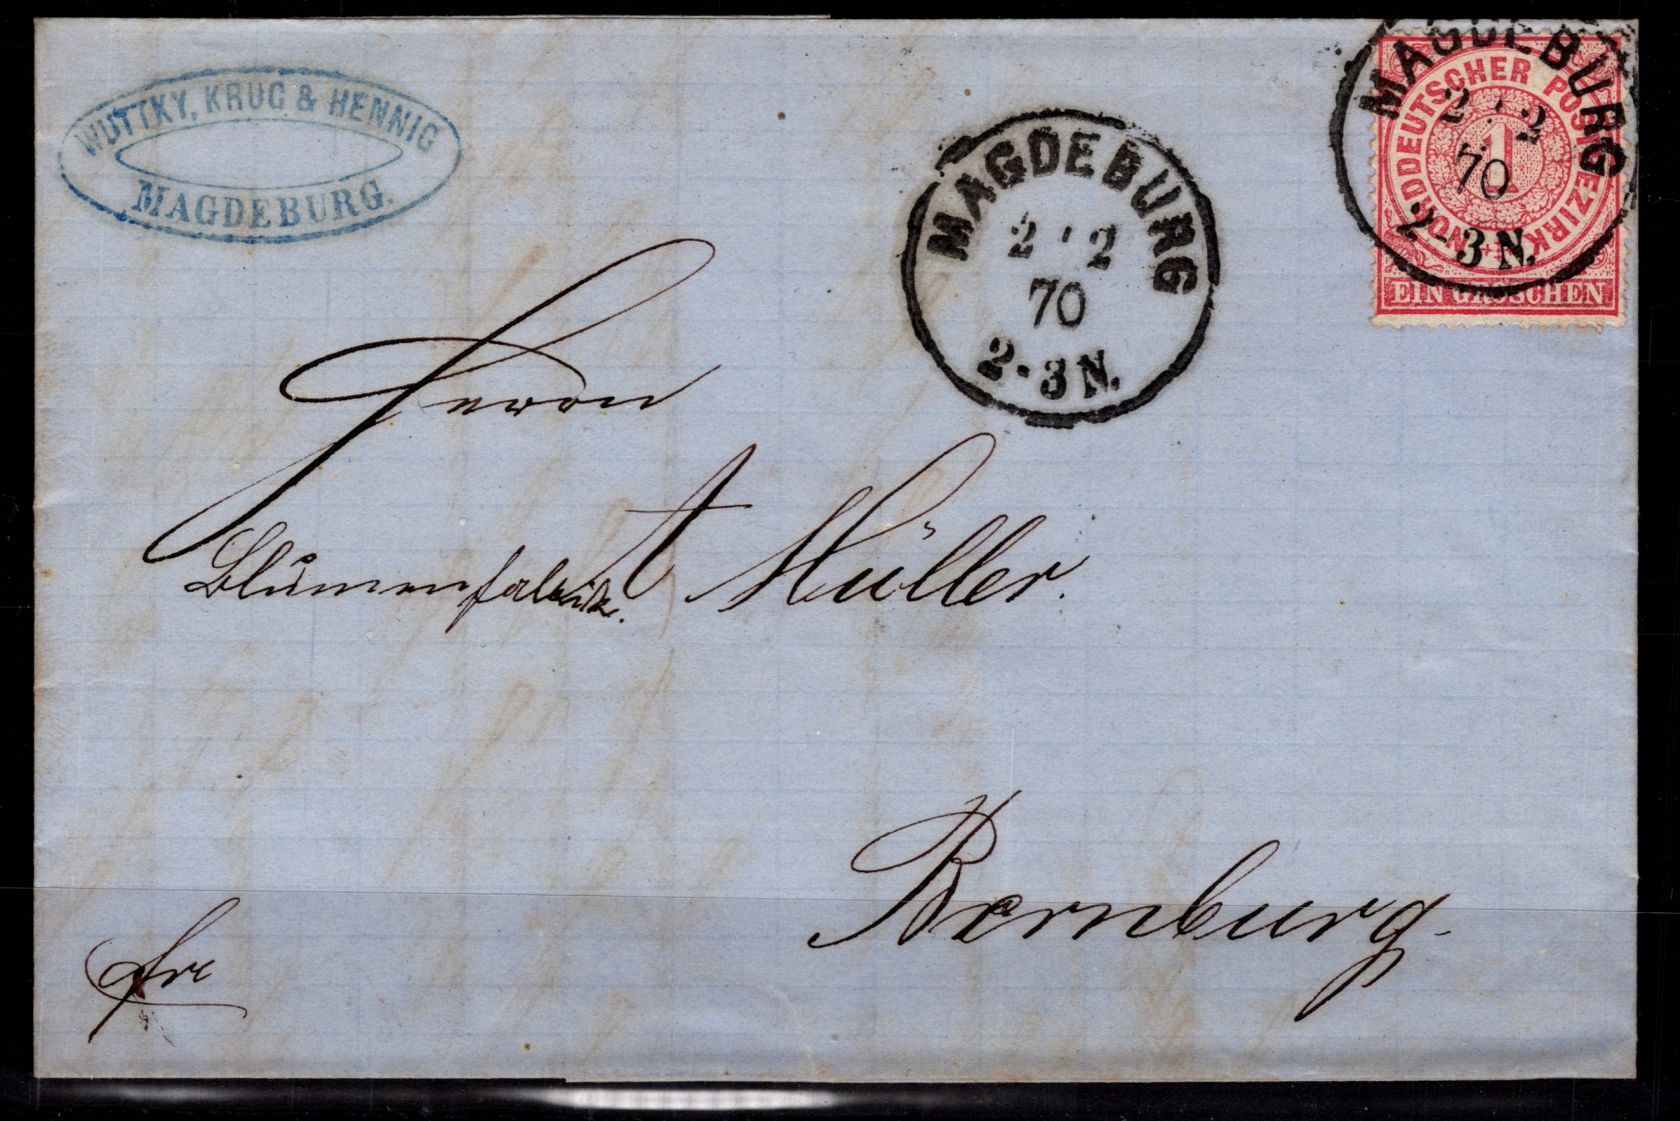 WUTTKY, KRUG & HENNIG
MAGDEBURG.
MAGDEBURG
2 2
70
2-3 N.
MAGDEBURG
2 2
70
2-3 N.
NORDDEUTSCHER POSTBEZIRK
1
EIN GROSCHEN
Herrn
A Müller.
Blumenfabrik.
Bernburg.
frc